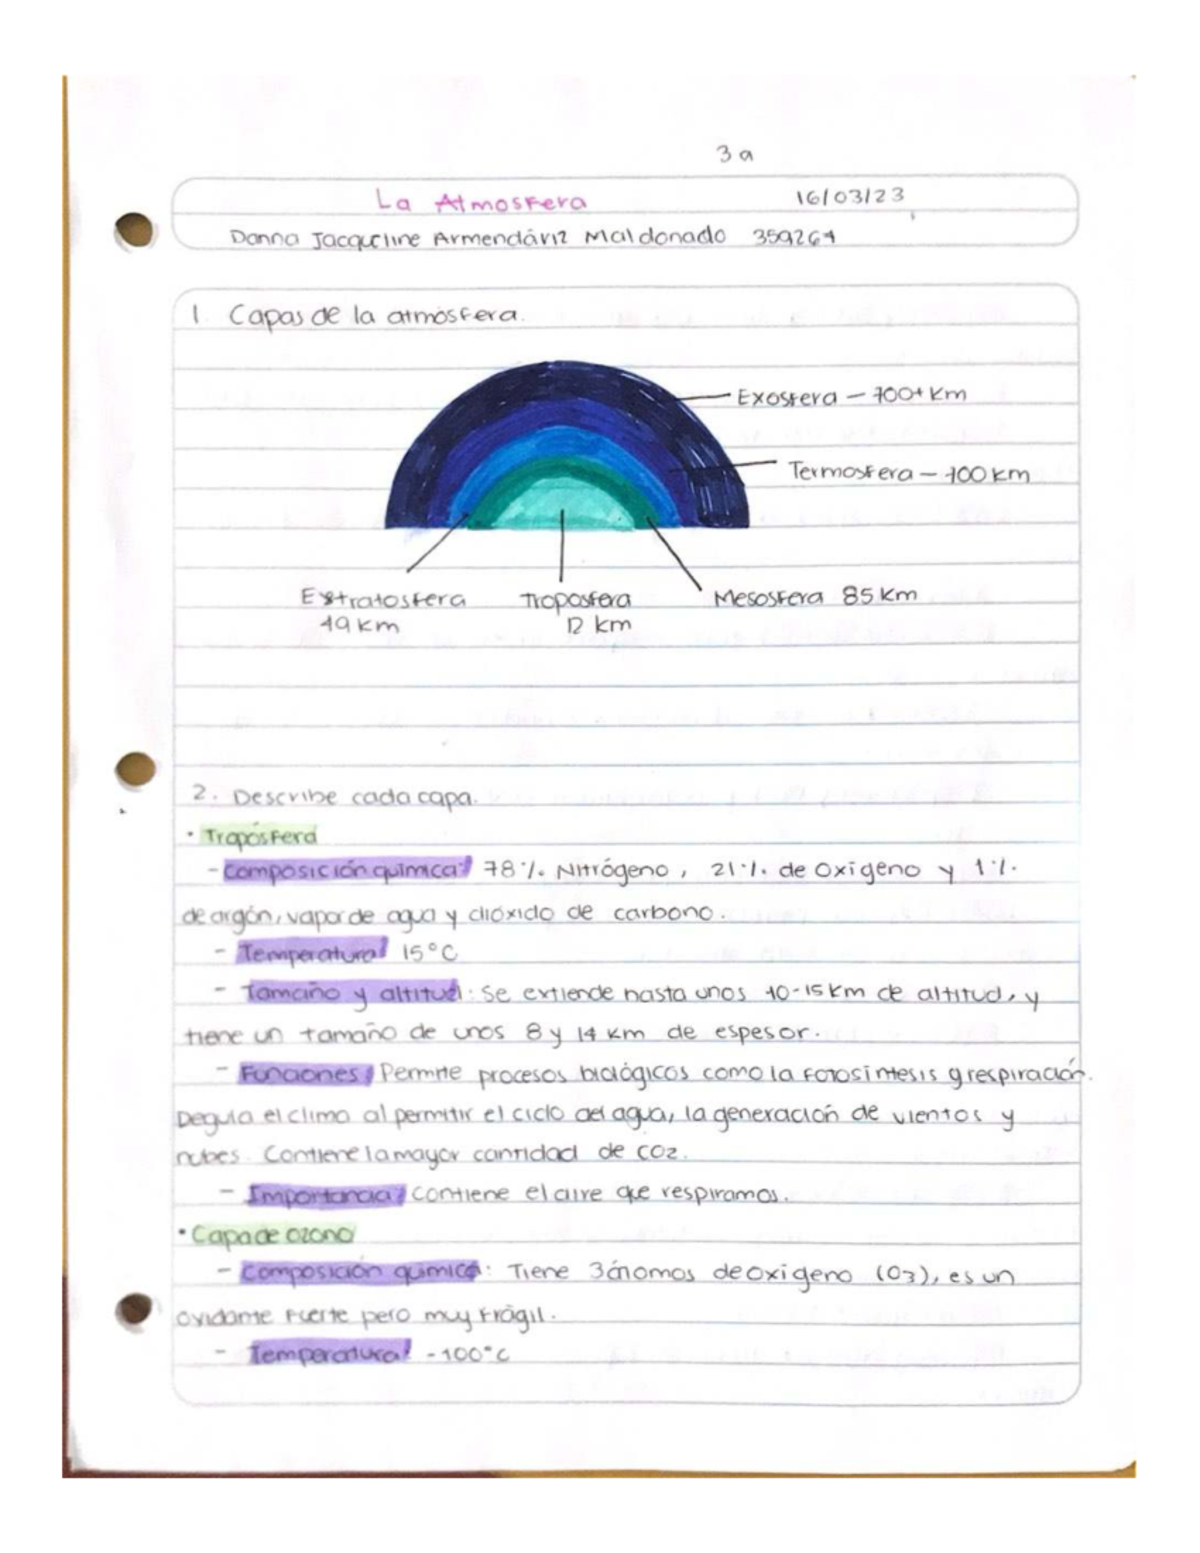 3 a
La Atmosfera 16/03/23
Danna Jacqueline Armendáriz Maldonado 359264
1 Capas de la atmósfera.
Exosfera – 700+ Km
Termosfera – 700 km
Extratosfera Troposfera Mesosfera 85 Km
49 km 12 km
2. Describe cada capa.
• Tropósfera
- Composición química: 78 %. Nitrógeno, 21 %. de Oxígeno y 1 %.
de argón, vapor de agua y dióxido de carbono.
- Temperatura: 15°C
- Tamaño y altitud: Se extiende hasta unos 10-15 Km de altitud, y
tiene un tamaño de unos 8 y 14 Km de espesor.
- Funciones: Permite procesos biológicos como la fotosíntesis y respiración.
Regula el clima al permitir el ciclo del agua, la generación de vientos y
nubes. Contiene la mayor cantidad de CO2.
- Importancia: Contiene el aire que respiramos.
• Capa de ozono
- Composición química: Tiene 3 átomos de oxígeno (O3), es un
oxidante fuerte pero muy frágil.
- Temperatura: -100°C